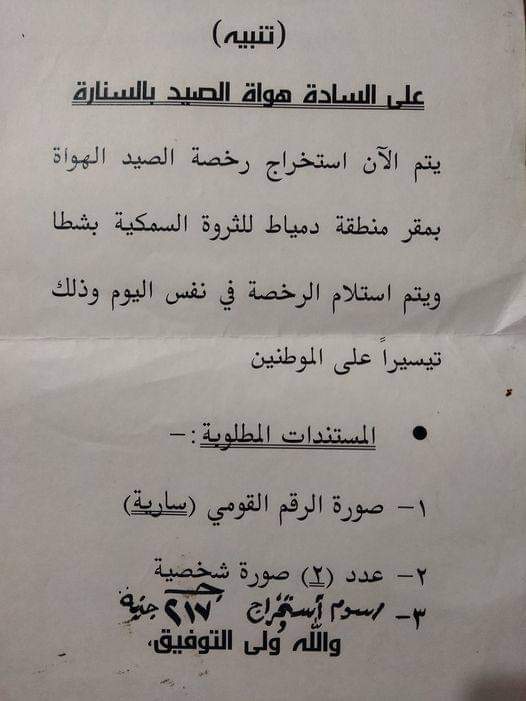 (تنبيه)
على السادة هواة الصيد بالسنارة
يتم الآن استخراج رخصة الصيد الهواة
بمقر منطقة دمياط للثروة السمكية بشطا
ويتم استلام الرخصة في نفس اليوم وذلك
تيسيراً على الموطنين
● المستندات المطلوبة :–
١– صورة الرقم القومي (سارية)
٢– عدد (٢) صورة شخصية
٣– رسوم أستخراج ٢١٧ جنيه
والله ولى التوفيق،